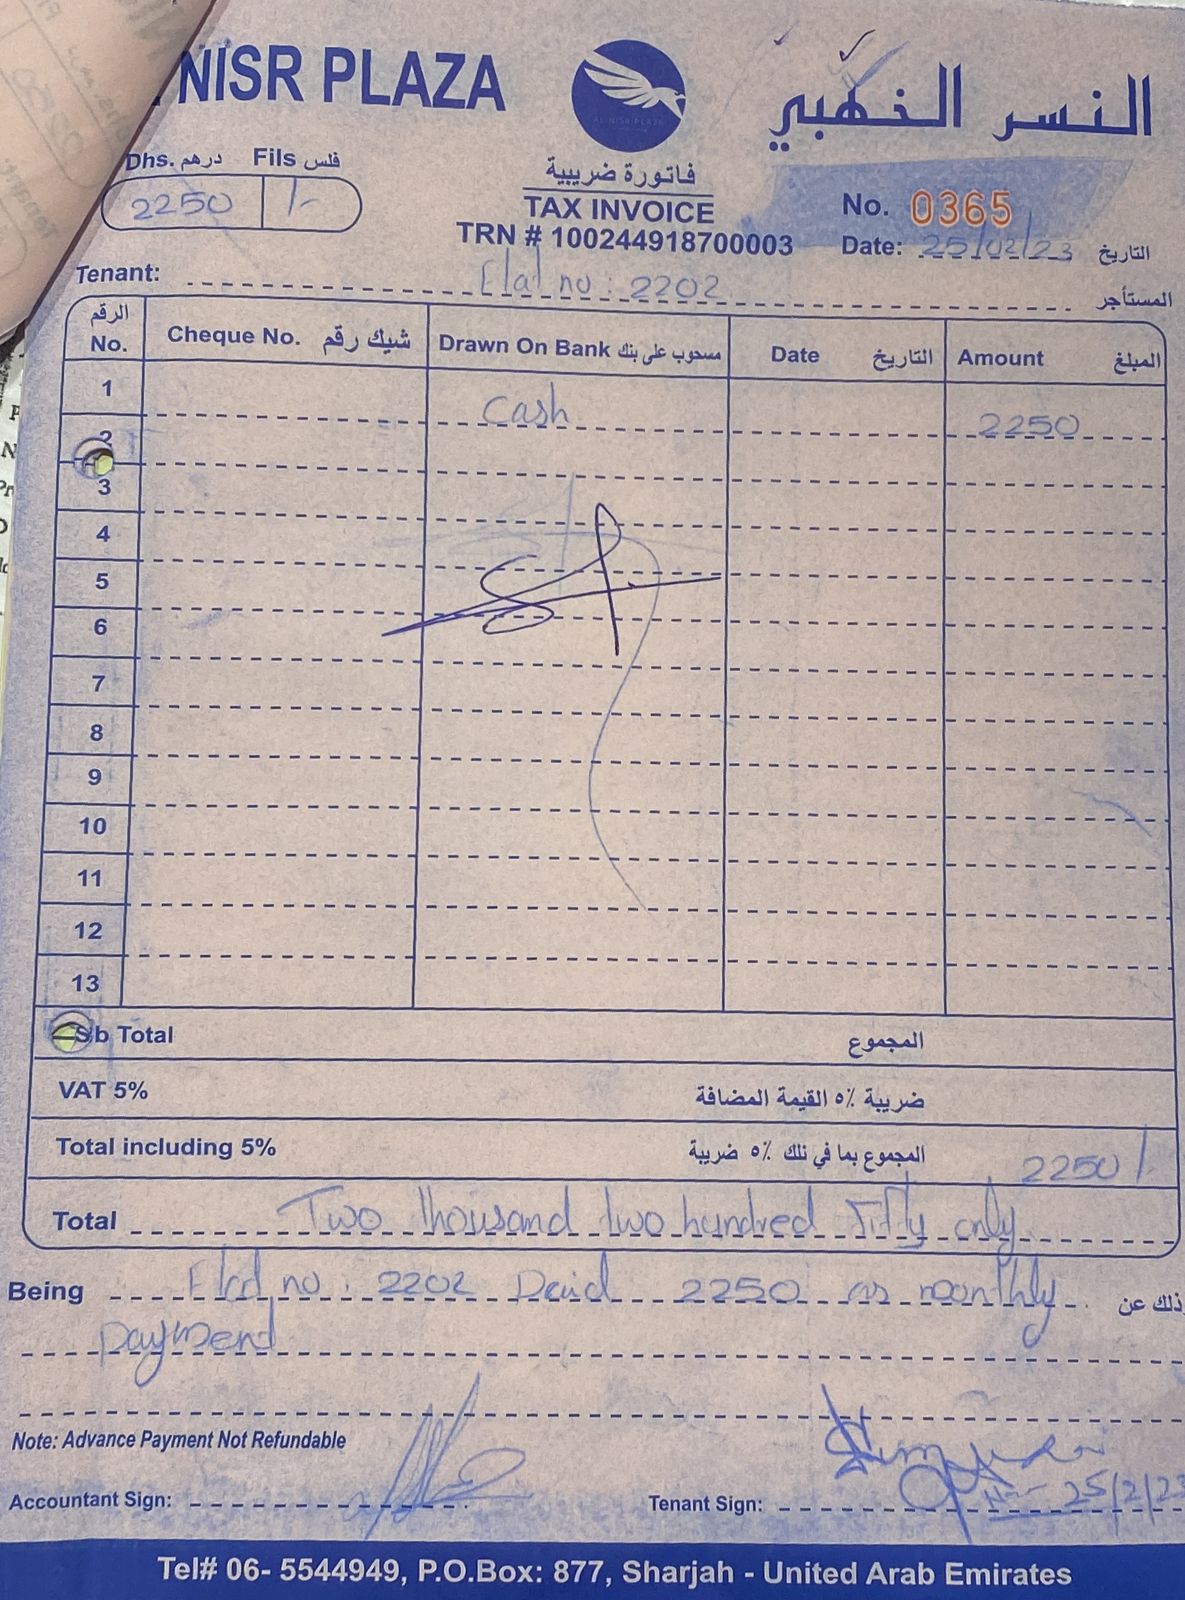 NISR PLAZA
النسر الذهبي
AL NISR PLAZA
Dhs. درهم Fils فلس
2250 /-
فاتورة ضريبية
TAX INVOICE
TRN # 100244918700003
No. 0365
Date: 25/02/23 التاريخ
Tenant: Flat no : 2202 المستأجر
الرقم No. Cheque No. شيك رقم Drawn On Bank مسحوب على بنك Date التاريخ Amount المبلغ
1 Cash 2250
2
3
4
5
6
7
8
9
10
11
12
13
Sb Total المجموع
VAT 5% ضريبة ٥٪ القيمة المضافة
Total including 5% المجموع بما في تلك ٥٪ ضريبة 2250/-
Total Two thousand two hundred Fifty only
Being Flat no : 2202 Paid 2250 as monthly وذلك عن
payment
Note: Advance Payment Not Refundable
Accountant Sign:
Tenant Sign: 25/2/23
Tel# 06- 5544949, P.O.Box: 877, Sharjah - United Arab Emirates